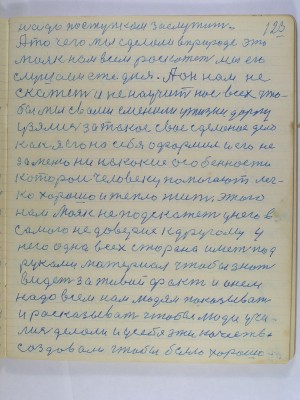 надо поступкам заслужить.
123
А то чего мы сделали в природе это
маяк нам всем расскажет мы его
слушаем сте дня. А он нам не
скажет и не научит нас всех что-
бы мы с вами сменили у жизни дорогу
узялися за такое свое сделаное дело
как я его на себя одобрил и его не
заменю ни на какие особенности
которои человеку помогают лег-
ко хорошо и тепло жить. этого
нам Маяк не подскажет у него в
самого недоверие к другому у
него одна всех сторона иметь под
руками материал чтобы знать
видеть за живой факт и о нем
надо всем нам людям показывать
и рассказывать чтобы люди учи-
лися делали и у себя эти качества
создовали чтобы было хорошо